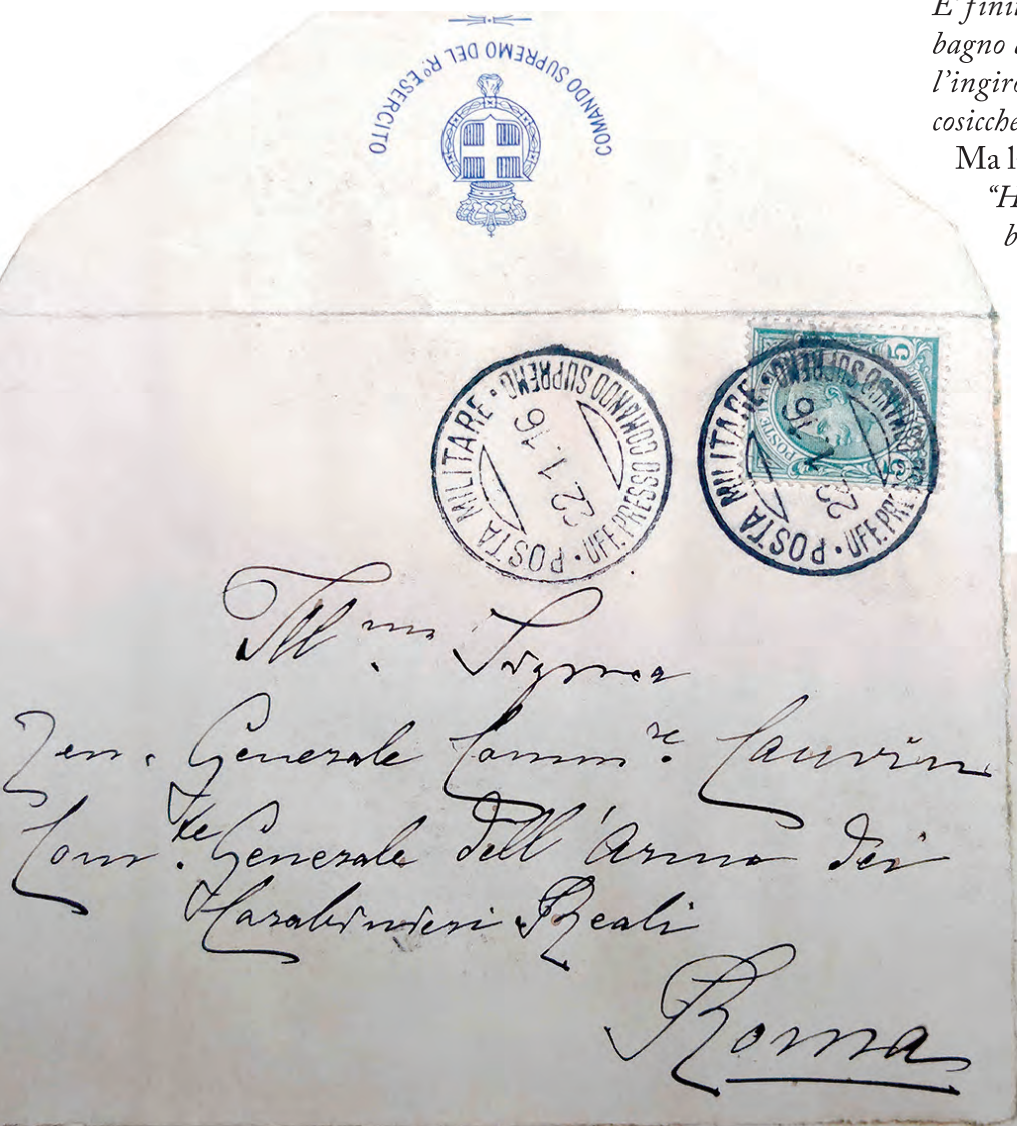 E' finit
bagno
l'ingiro
cosicche
Ma l
“H
b
COMANDO SUPREMO DEL R.º ESERCITO
POSTA MILITARE · UFF. PRESSO COMANDO SUPREMO ·
22.1.16
POSTA MILITARE · UFF. PRE
POSTE
5 5
Ill.mo Signor
Ten. Generale Comm.re Cauvin
Com.te Generale dell'Arma dei
Carabinieri Reali
Roma